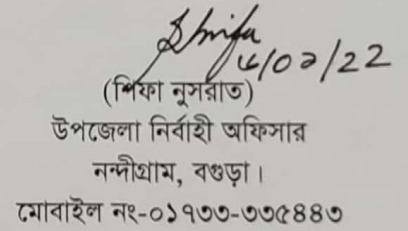 Shifa
(শিফা নুসরাত)
উপজেলা নির্বাহী অফিসার
নন্দীগ্রাম, বগুড়া।
মোবাইল নং-০১৭৩৩-৩৩৫৪৪৩